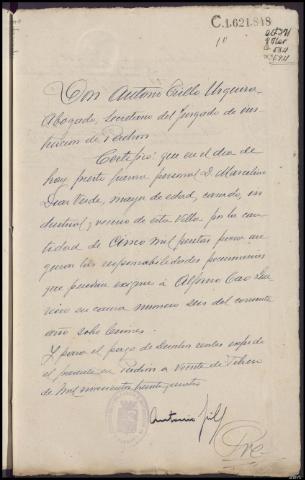 C.1.621.848
Don Antonio Trillo Urquiza
Abogado, Secretario del Juzgado de ins-
trucción de Padrón
Certifico: que en el día de
hoy prestó fianza personal D. Marcelino
mayor de edad, casado, in-
dustrial y vecino de esta Villa por la can-
tidad de Cinco mil pesetas para ase-
gurar las responsabilidades pecuniarias
que puedan exigirse a Alfonso Cao
en causa número seis del corriente
año sobre lesiones.
Y para el expido
el presente en Padrón a veinte de
de mil novecientos treinta y cuatro
Antonio